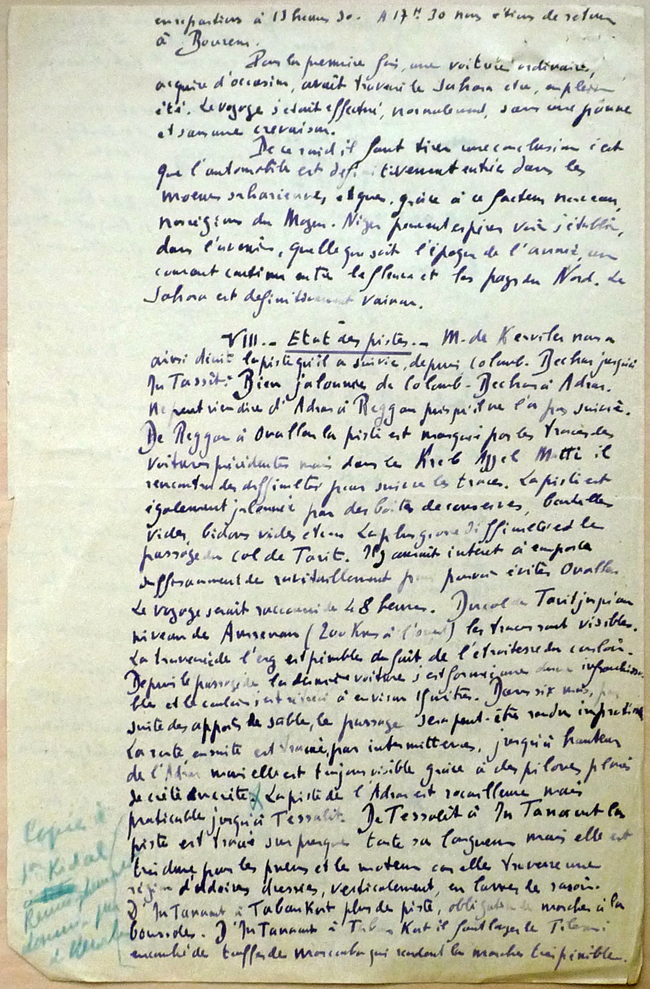 en repartions à 13 heures 30. A 17H 30 nous étions de retour
à Bourem.
Pour la première fois, une voiture ordinaire,
acquise d'occasion, avait traversé le Sahara et ce, en plein
été. Le voyage s'était effectué, normalement, sans une panne
et sans une crevaison.
De ce raid il faut tirer une conclusion c'est
que l'automobile est définitivement entrée dans les
moeurs sahariennes et que, grâce à ce facteur nouveau,
nos régions du Moyen-Niger peuvent espérer voir s'établir,
dans l'avenir, quelle que soit l'époque de l'année, un
courant continu entre le fleuve et les pays du Nord. Le
Sahara est définitivement vaincu.
VIII.- Etat des pistes.- M. de Kerviler nous a
ainsi décrit la piste qu'il a suivie, depuis Colomb-Bechar jusqu'à
In Tassit: Bien jalonnée de Colomb-Bechar à Adrar.
Ne peut rien dire d'Adrar à Reggan puisqu'il ne l'a pas suivie.
De Reggan à Ouallen la piste est marquée par les traces des
voitures précédentes mais dans le Kreb Azzel Matti il
rencontra des difficultés pour suivre les traces. La piste est
également jalonnée par des boîtes de conserves, bouteilles
vides, bidons vides etc... La plus grosse difficulté est le
passage du col de Tarit. Il y aurait intérêt à emporter
suffisamment de ravitaillement pour pouvoir éviter Ouallen
Le voyage serait raccourci de 48 heures. Du col de Tarit jusqu'au
niveau de (200 Kms à l'ouest) les traces sont visibles.
La traversée de l'erg est pénible du fait de l'étroitesse du couloir.
Depuis le passage de la dernière voiture s'est formée une dune infranchissa-
ble et le couloir s'est réduit à environ 15 mètres. Dans six mois, par
suite des apports de sable, le passage sera peut-être rendu impraticable
La route ensuite est tracée, par intermittence, jusqu'à hauteur
de l'Adrar mais elle est toujours visible grâce à des pilones placés
de crête en crête. La piste de l'Adrar est rocailleuse mais
praticable jusqu'à Tessalit. De Tessalit à In Tanaout la
piste est tracée sur presque toute sa longueur mais elle est
très dure pour les pneus et le moteur car elle traverse une
région d'ardoises dressées, verticalement, en lames de rasoir.
D'In Tanaout à Tabankort plus de piste, obligation de marcher à la
boussole. D'In Tanaout à Tabankort il faut longer le Tilemsi
encombré de touffes de qui rendent la marche très pénible.
Copie à
Kidal